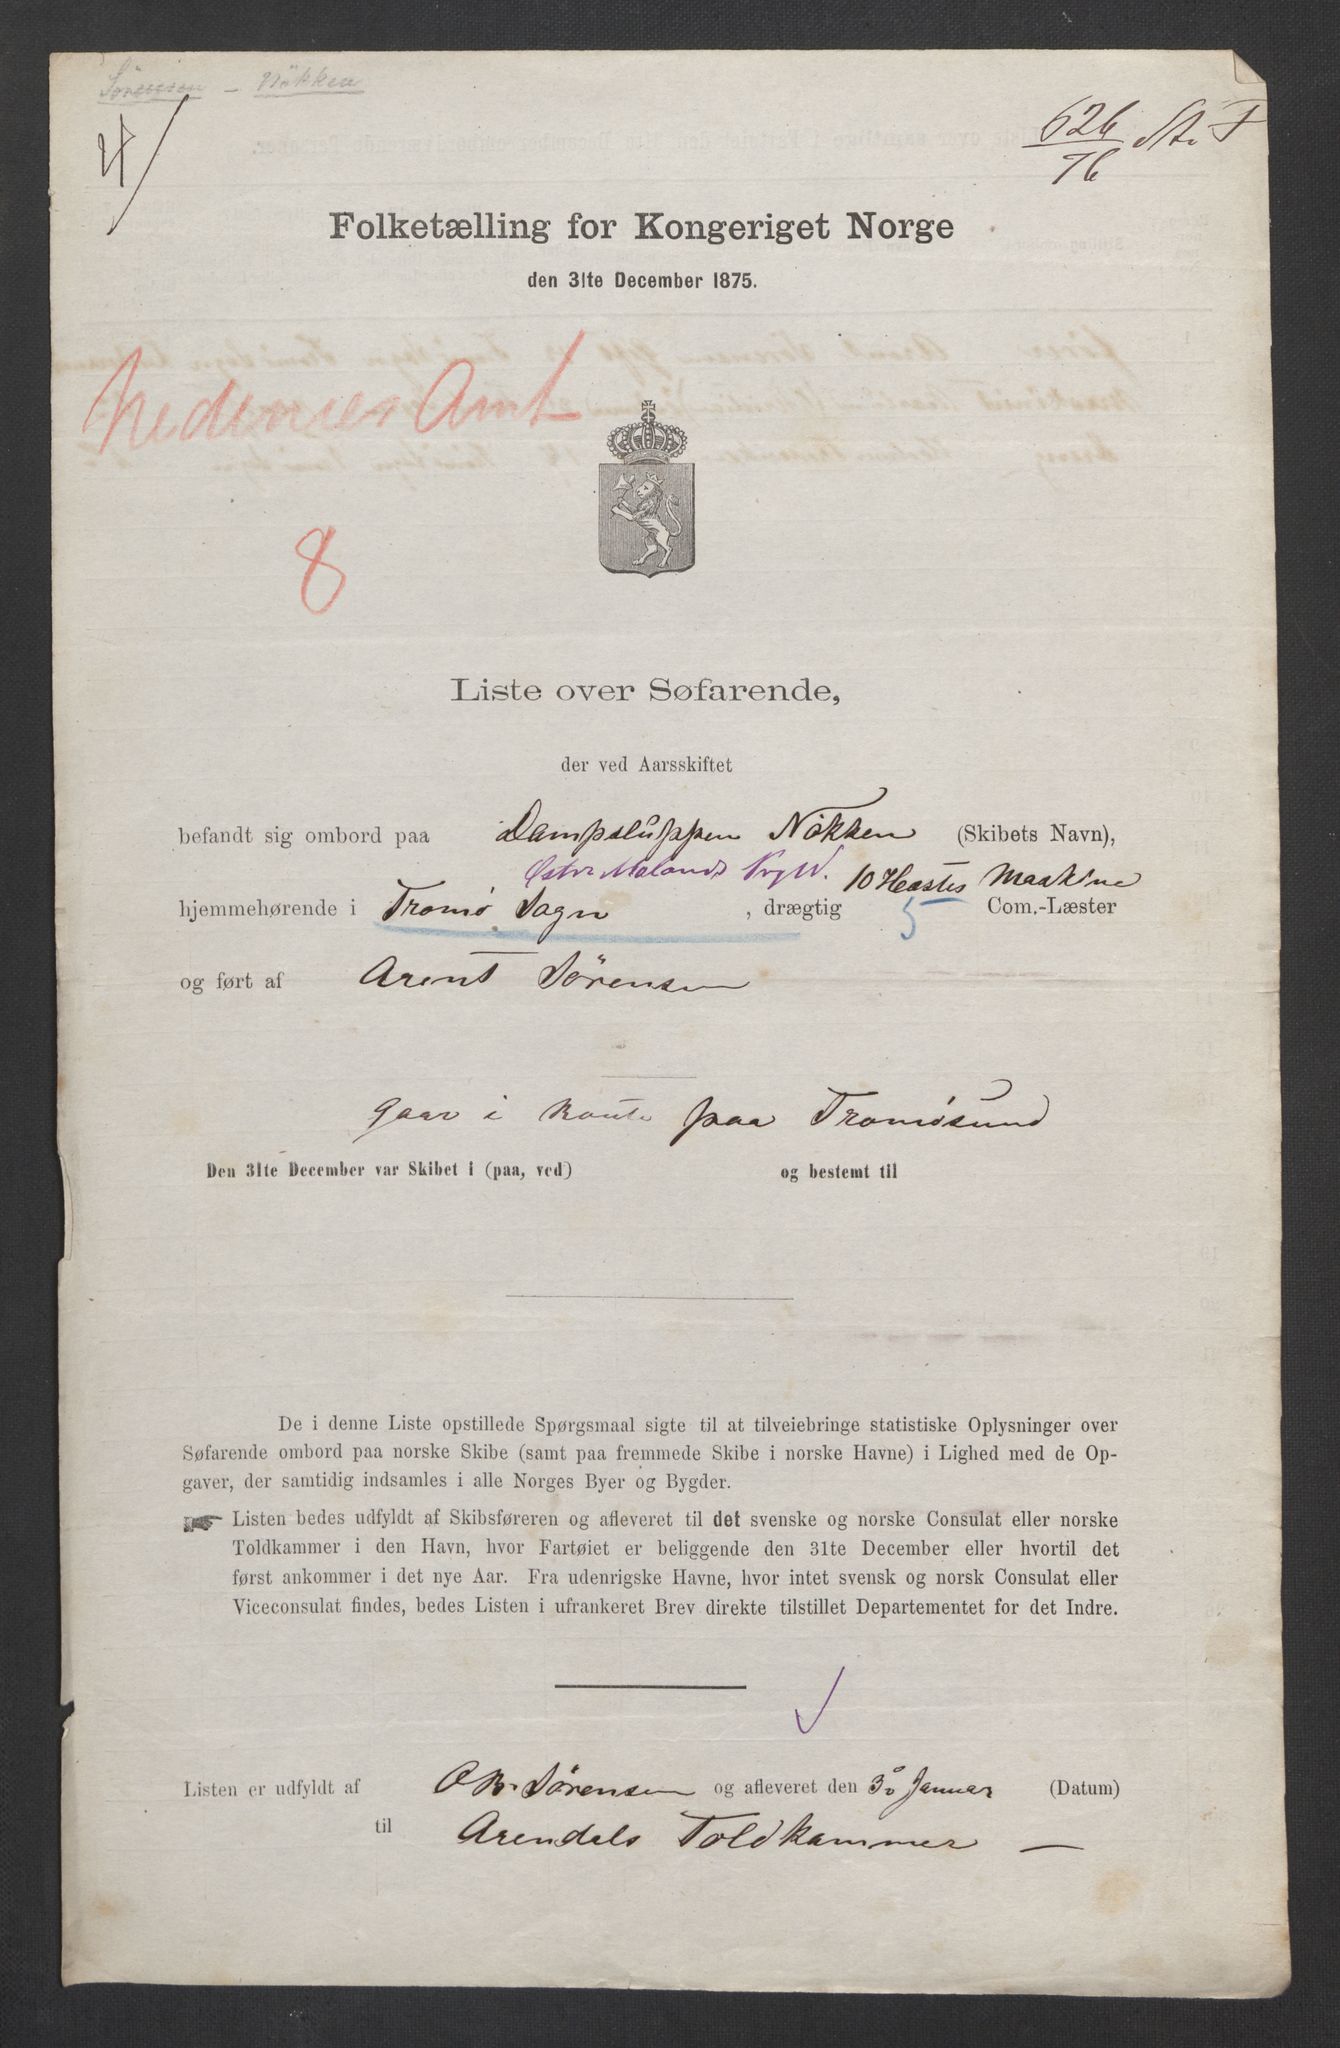 Sørensen - Nökken
626/76 St. F
Folketælling for Kongeriget Norge
den 31te December 1875.
Nedenes Amt
8
Liste over Søfarende,
der ved Aarsskiftet
befandt sig ombord paa Dampsluppen Nökken (Skibets Navn),
Østre Molands Prgld. 10 Hestes Maskine
hjemmehørende i Tromø Sogn, drægtig 5 Com.-Læster
og ført af Arent Sörensen
gaar i Route paa Tromösund
Den 31te December var Skibet i (paa, ved) og bestemt til
De i denne Liste opstillede Spørgsmaal sigte til at tilveiebringe statistiske Oplysninger over
Søfarende ombord paa norske Skibe (samt paa fremmede Skibe i norske Havne) i Lighed med de Op-
gaver, der samtidig indsamles i alle Norges Byer og Bygder.
Listen bedes udfyldt af Skibsføreren og afleveret til det svenske og norske Consulat eller norske
Toldkammer i den Havn, hvor Fartøiet er beliggende den 31te December eller hvortil det
først ankommer i det nye Aar. Fra udenrigske Havne, hvor intet svensk og norsk Consulat eller
Viceconsulat findes, bedes Listen i ufrankeret Brev direkte tilstillet Departementet for det Indre.
Listen er udfyldt af Sörensen og afleveret den 3 Januar (Datum)
til Arendals Toldkammer —